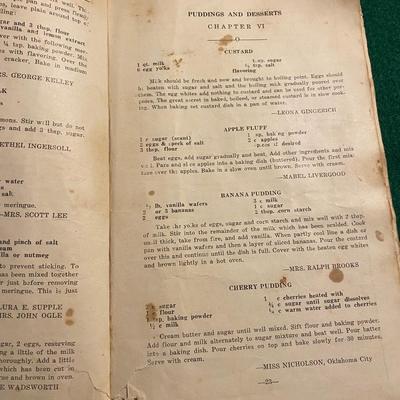 age pan and press
y. Stick firmly
op, leave plain around top
d.
sugar and 3 tbsp. flour
vanilla and lemon extract
over with the following mer-
¼ tsp. baking powder. Mix
cracker. Bake in medium
RS. GEORGE KELLEY
LK
mons. Stir will but do not
gs and add 2 tbsp. sugar.
ETHEL INGERSOLL
water
—MRS. SCOTT LEE
and pinch of salt
cream
illa or nutmeg
to prevent sticking. To
has been mixed together
r just before removing
meringue. This is just
URA E. SUPPLE
RS. JOHN OGLE
sugar, 2 eggs, reserving
ng a little of the milk
horoughly. Add a little
which has been cut in
rse and brown in oven.
E WADSWORTH
PUDDINGS AND DESSERTS
CHAPTER VI
O
CUSTARD
1 qt. milk
6 egg yolks
sugar
½ tsp. salt
flavoring
Milk should be fresh and new and brought to boiling point. Eggs should
be beaten with sugar and salt and the milk gradually added as they
chen. The egg whites add nothing to custard and can be used for other pur-
poses. The great secret in baked, boiled, or steamed custard is in slow cook-
ing. When baking set custard dish in a pan of water.
—LEONA GINGERICH
APPLE FLUFF
1 c sugar (scant)
2 eggs & speck of salt
3 tbsp. flour
1 tsp. baking powder
2 c apples
spices if desired
Beat eggs, add sugar gradually and beat. Add other ingredients and mix
well. Pare and slice apples into a baking dish (buttered). Pour the first mix-
ture over the apples. Bake in a slow oven until brown. Serve with cream.
—MABEL LIVERGOOD
BANANA PUDDING
½ lb. vanilla wafers
2 or 3 bananas
2 eggs
3 c milk
1 c sugar
2 tbsp. corn starch
Take the yolks of eggs, sugar and corn starch and mix well with 2 tbsp
of milk. Stir into the remainder of the milk which has been scalded. Cook
until thick, take from fire, and add vanilla. When partly cool line a dish or
pan with vanilla wafers and then a layer of sliced bananas. Pour the custard
over this and continue until the dish is full. Cover with the beaten egg whites
and brown lightly in a hot oven.
—MRS. RALPH BROOKS
CHERRY PUDDING
c sugar
c flour
1 tsp. baking powder
½ c milk
1 c cherries heated with
½ c sugar until sugar dissolves
¾ c warm water added to cherries
Cream butter and sugar until well mixed. Sift flour and baking powder.
Add flour and milk alternately to sugar mixture and beat well. Pour batter
into a baking dish. Pour cherries on top and bake slowly for 30 minutes.
Serve with cream.
—MISS NICHOLSON, Oklahoma City
—23—